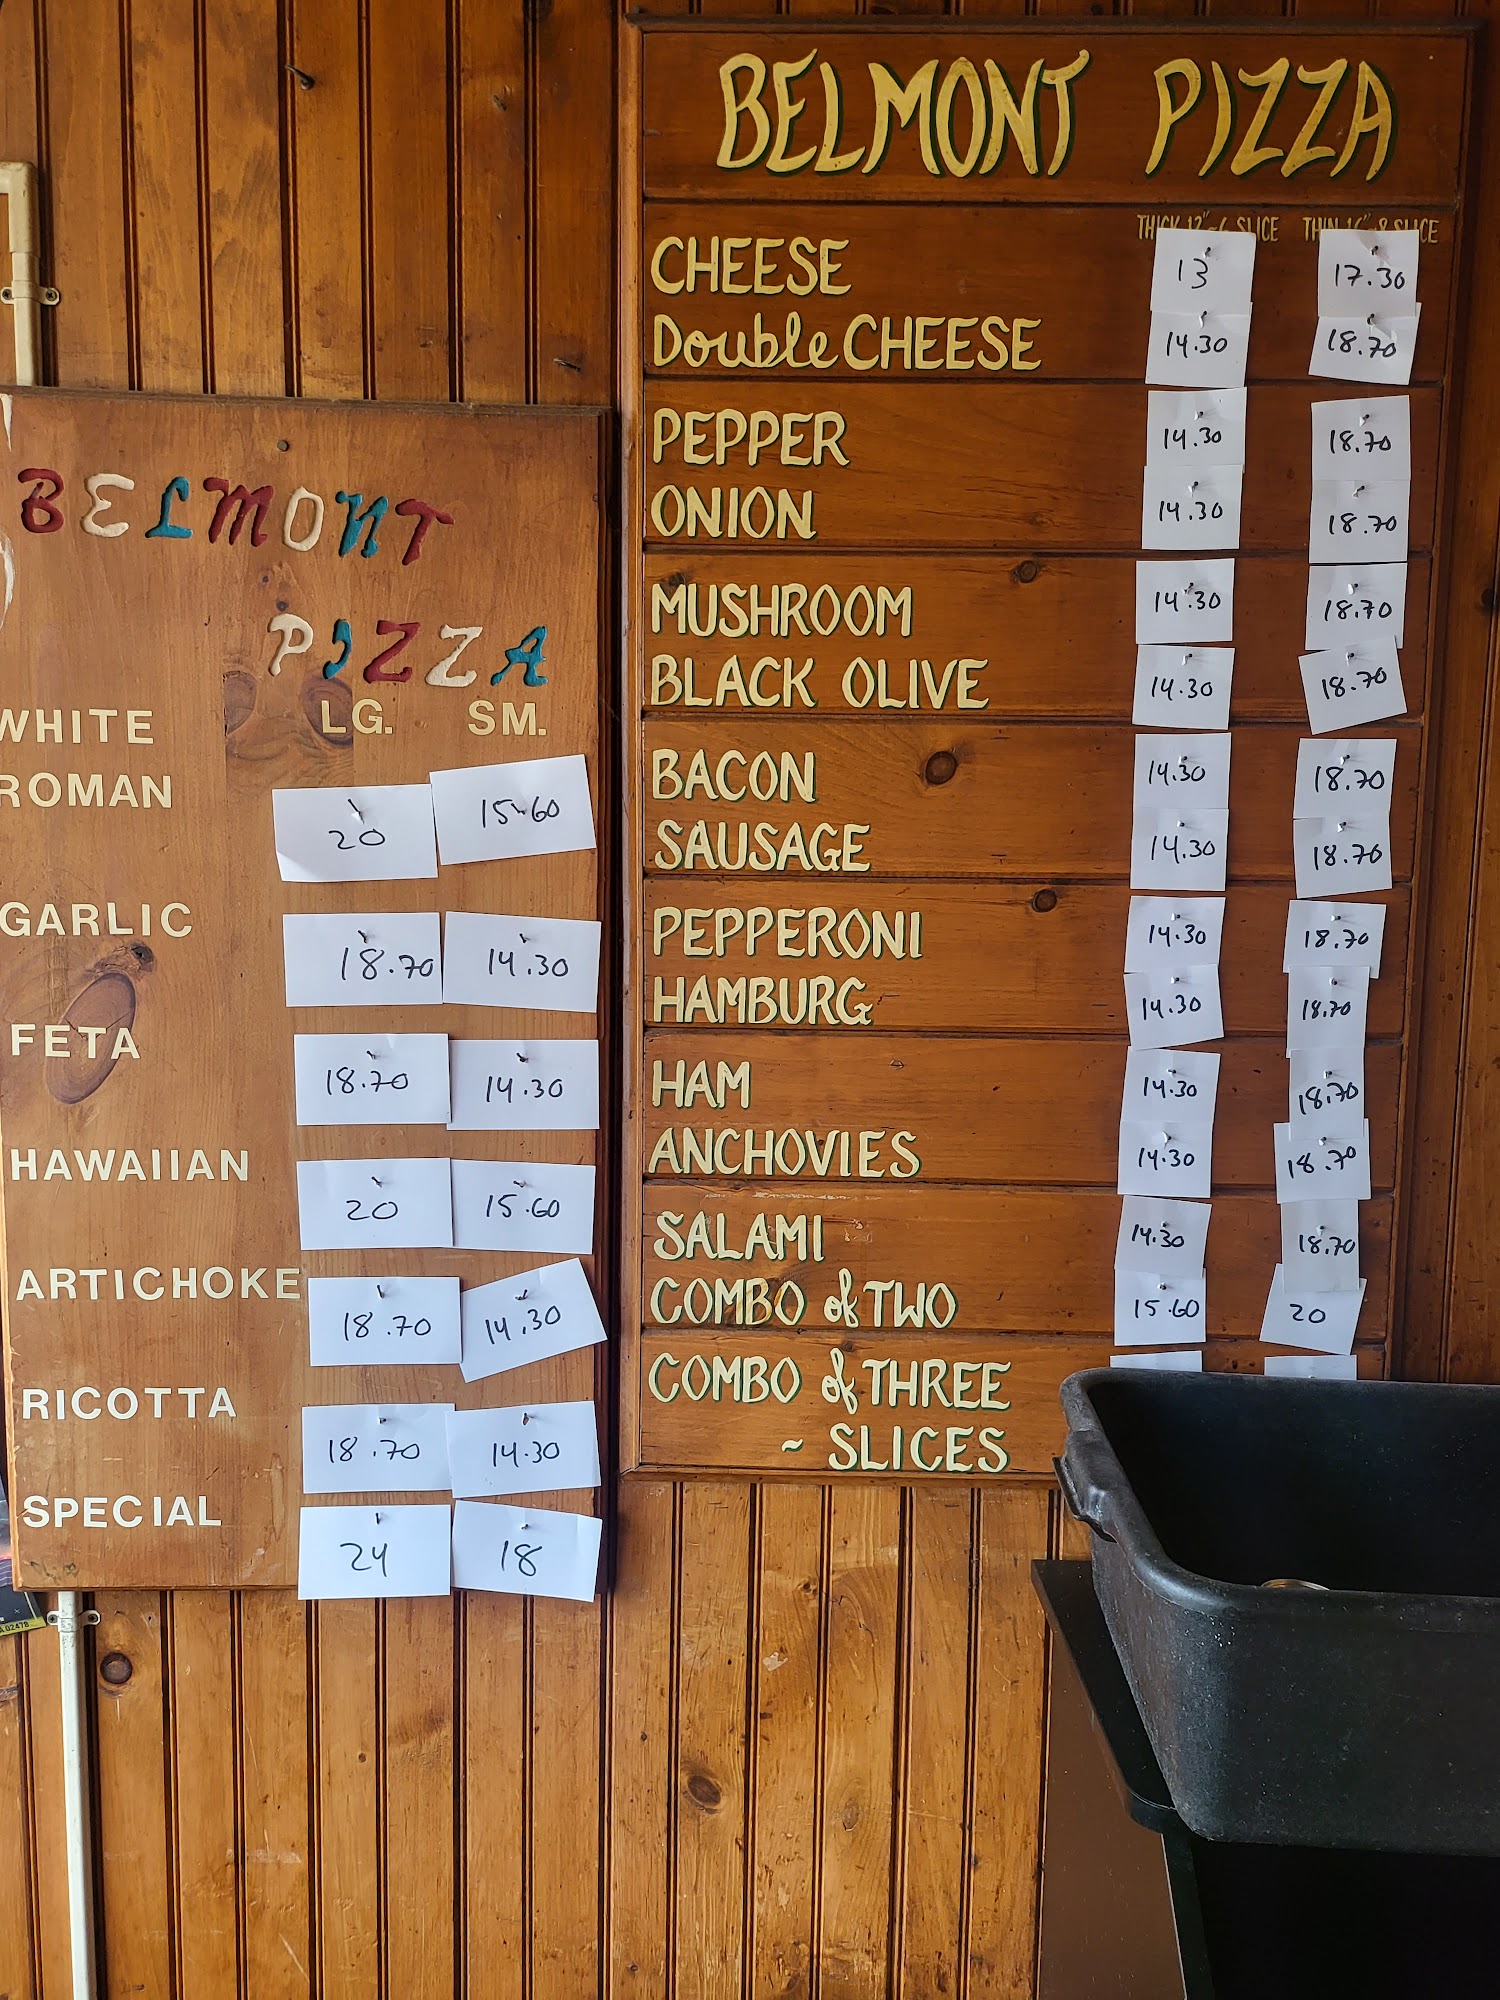 BELMONT
PIZZA
LG. SM.
WHITE
ROMAN 20 15.60
GARLIC 18.70 14.30
FETA 18.70 14.30
HAWAIIAN 20 15.60
ARTICHOKE 18.70 14.30
RICOTTA 18.70 14.30
SPECIAL 24 18
02478
BELMONT PIZZA
THICK 12" ~ 6 SLICE THIN 16" ~ 8 SLICE
CHEESE 13 17.30
Double CHEESE 14.30 18.70
PEPPER 14.30 18.70
ONION 14.30 18.70
MUSHROOM 14.30 18.70
BLACK OLIVE 14.30 18.70
BACON 14.30 18.70
SAUSAGE 14.30 18.70
PEPPERONI 14.30 18.70
HAMBURG 14.30 18.70
HAM 14.30 18.70
ANCHOVIES 14.30 18.70
SALAMI 14.30 18.70
COMBO of TWO 15.60 20
COMBO of THREE
~ SLICES